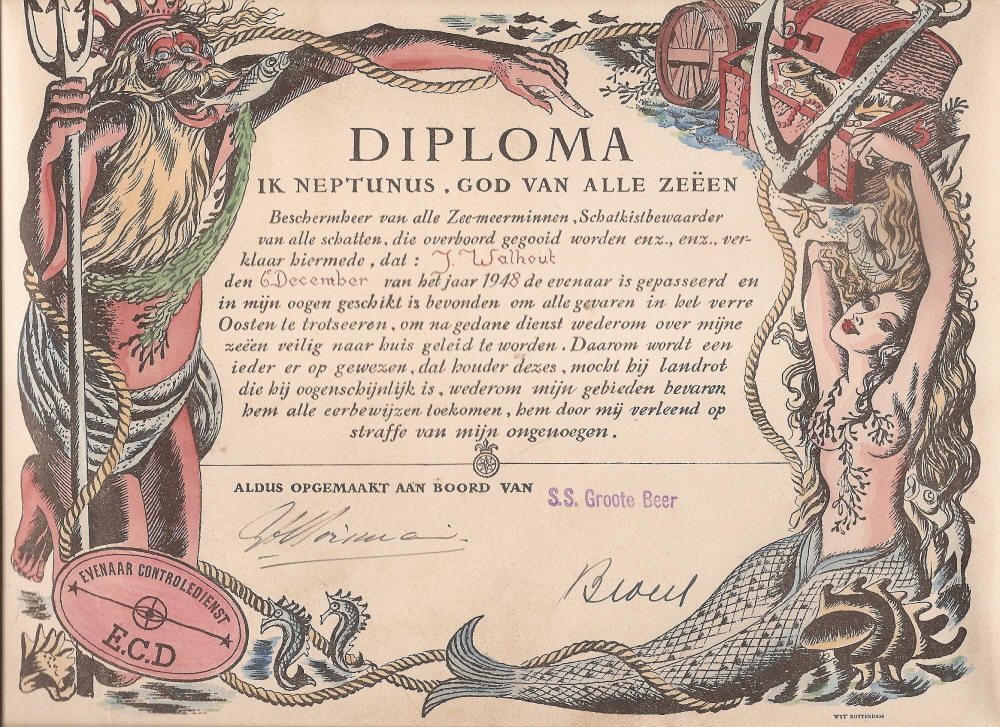 DIPLOMA
IK NEPTUNUS, GOD VAN ALLE ZEËEN
Beschermheer van alle Zee-meerminnen, Schatkistbewaarder
van alle schatten, die overboord gegooid worden enz., enz., ver-
klaar hiermede, dat : J. Walhout
den 6 December van het jaar 1948 de evenaar is gepasseerd en
in mijn oogen geschikt is bevonden om alle gevaren in het verre
Oosten te trotseeren, om na gedane dienst wederom over mijne
zeeën veilig naar huis geleid te worden. Daarom wordt een
ieder er op gewezen, dat houder dezes, mocht hij landrot
die hij oogenschijnlijk is, wederom mijn gebieden bevaren,
hem alle eerbewijzen toekomen, hem door mij verleend op
straffe van mijn ongenoegen.
ALDUS OPGEMAAKT AAN BOORD VAN S.S. Groote Beer
EVENAAR CONTROLEDIENST
E.C.D
WYT ROTTERDAM